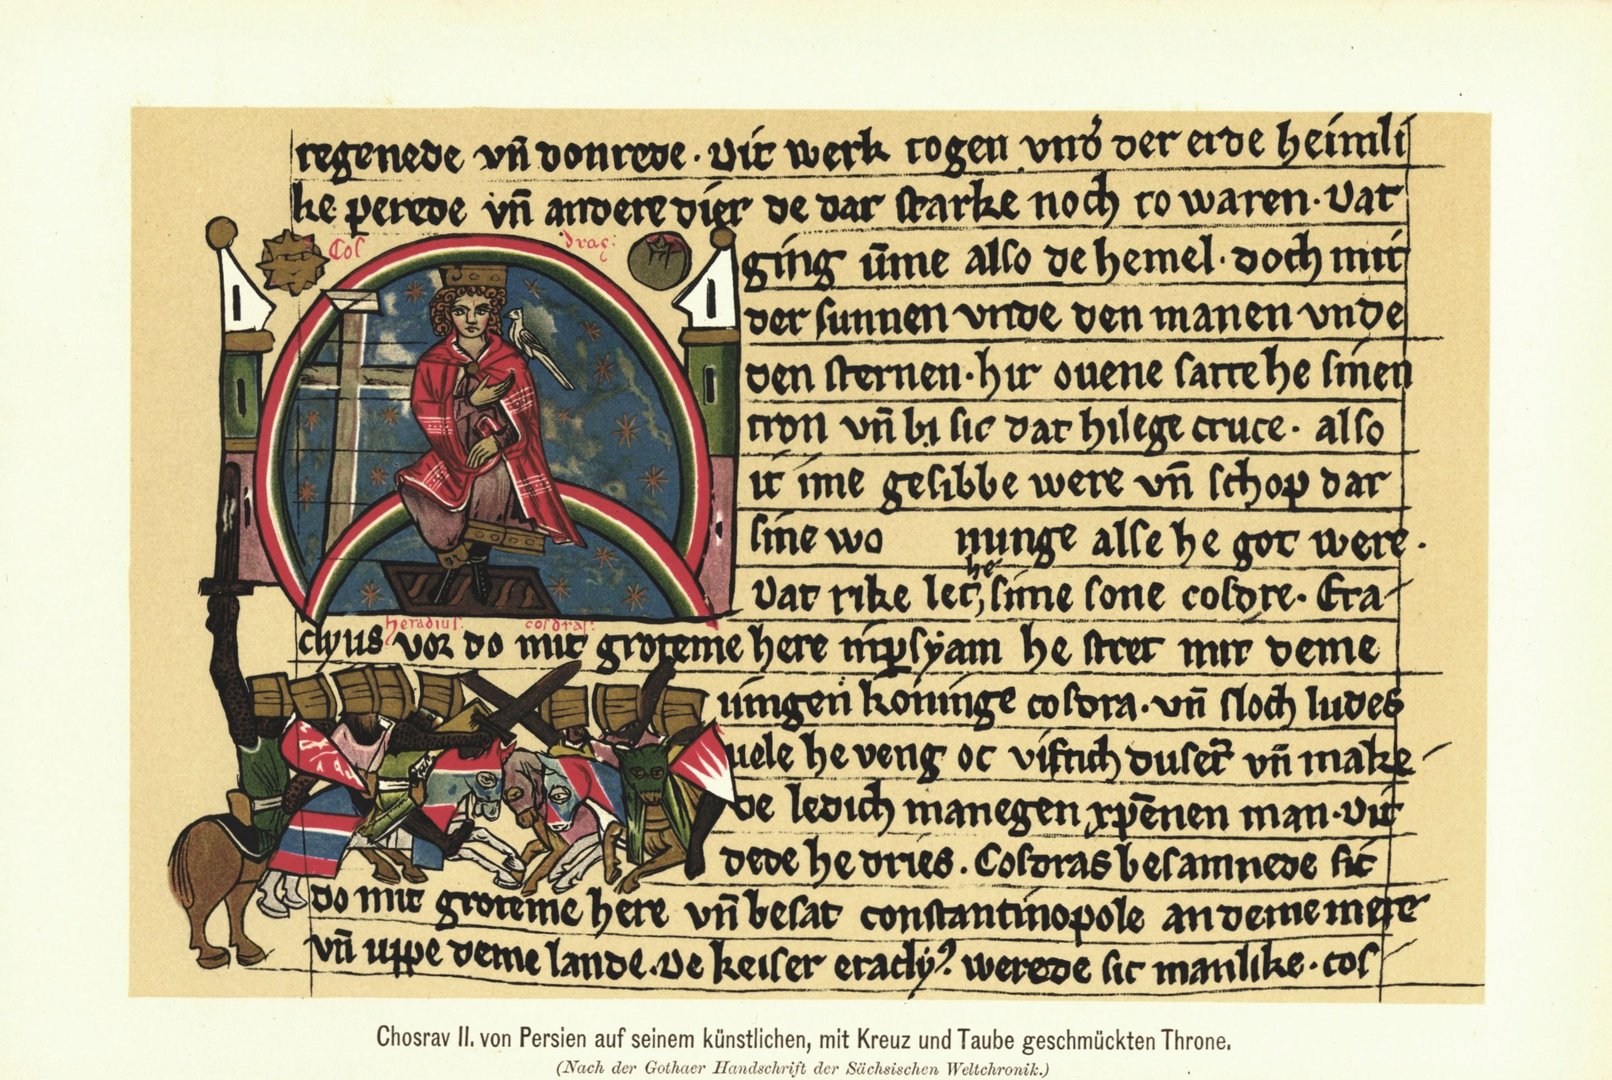 regenede vn̄ donrede · Dit werk togen vnd̕ der erde heimli
ke perede vn̄ andere dier de dar starke noch to waren · Dat
Cos
drac:
ging ūme also de hemel · doch mit
der sunnen vnde den manen vnde
den sternen · hir ouene satte he sinen
tron vn̄ bi sic dat hilege cruce · also
it ime gesibbe were vn̄ schop dar
sine wo nunge alse he got were ·
Dat rike let he sime sone cosdre · Era
heradius. cosdras.
clyus vor do mit groteme here inp̄syam he stret mit deme
iungen koninge cosdra · vn̄ sloch ludes
uele he veng oc viftich duset̄ vn̄ make
de ledich manegen xp̄enen man · Dit
dede he dries . Cosdras besamnede sic
do mit groteme here vn̄ besat constantinopole an deme mere
vn̄ uppe deme lande . De keiser eracly᾿ werede sic manlike · cos
Chosrav II. von Persien auf seinem künstlichen, mit Kreuz und Taube geschmückten Throne.
(Nach der Gothaer Handschrift der Sächsischen Weltchronik.)